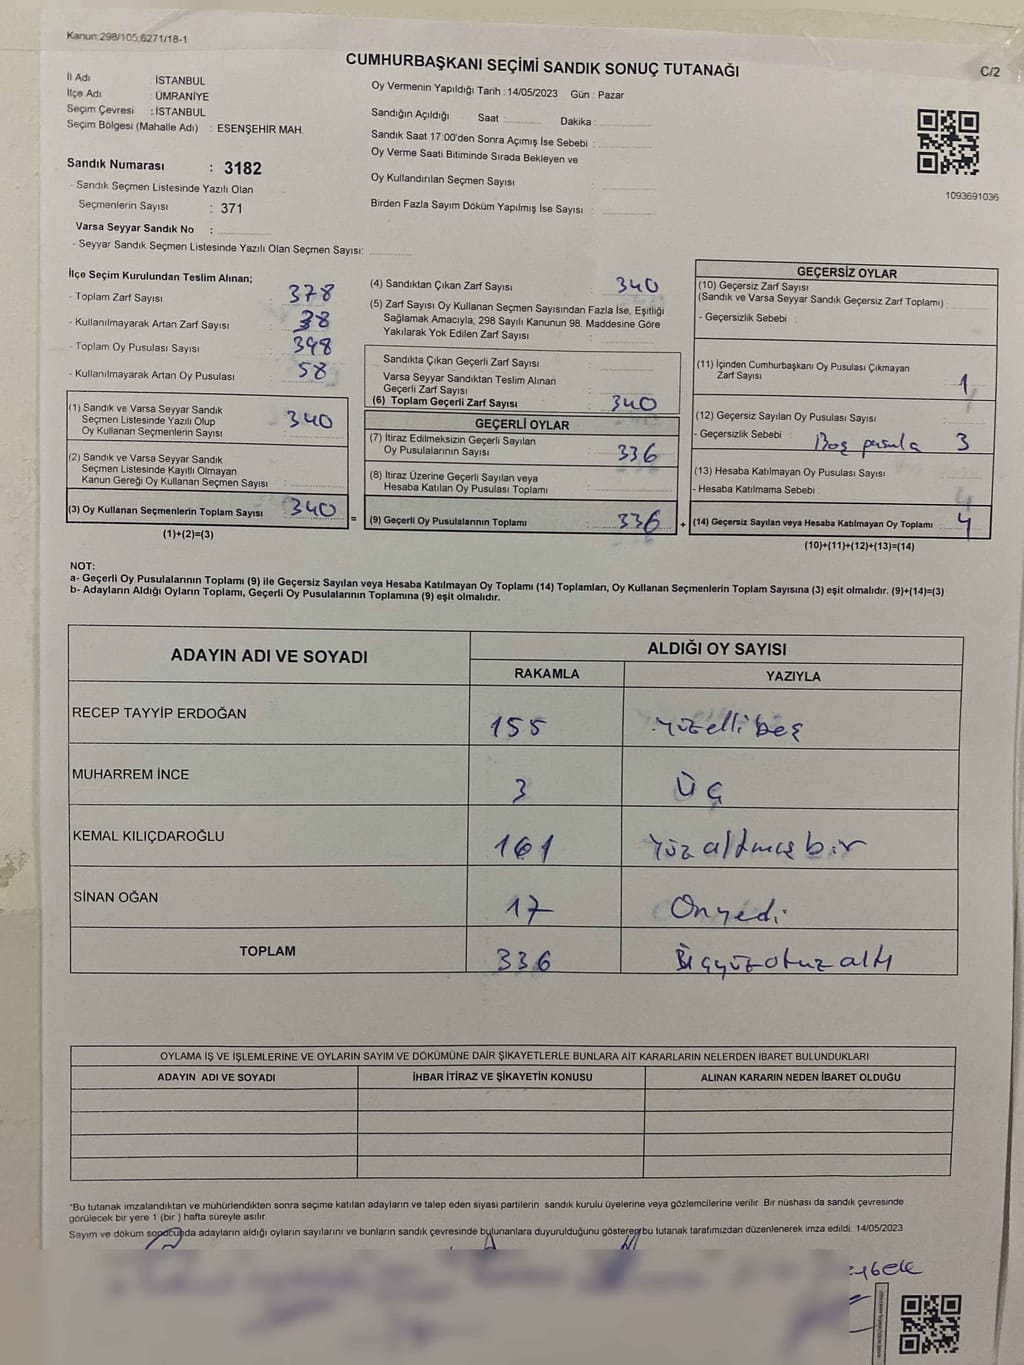 Kanun:298/105;6271/18-1
CUMHURBAŞKANI SEÇİMİ SANDIK SONUÇ TUTANAĞI
C/2
İl Adı İSTANBUL
İlçe Adı ÜMRANİYE
Seçim Çevresi : İSTANBUL
Seçim Bölgesi (Mahalle Adı) : ESENŞEHİR MAH.
Sandık Numarası : 3182
- Sandık Seçmen Listesinde Yazılı Olan
Seçmenlerin Sayısı : 371
Varsa Seyyar Sandık No :
- Seyyar Sandık Seçmen Listesinde Yazılı Olan Seçmen Sayısı:
Oy Vermenin Yapıldığı Tarih : 14/05/2023 Gün : Pazar
Sandığın Açıldığı Saat : Dakika :
Sandık Saat 17:00'den Sonra Açımış İse Sebebi :
Oy Verme Saati Bitiminde Sırada Bekleyen ve
Oy Kullandırılan Seçmen Sayısı :
Birden Fazla Sayım Döküm Yapılmış İse Sayısı :
1093691036
İlçe Seçim Kurulundan Teslim Alınan;
- Toplam Zarf Sayısı : 378
- Kullanılmayarak Artan Zarf Sayısı : 38
- Toplam Oy Pusulası Sayısı : 398
- Kullanılmayarak Artan Oy Pusulası : 58
(1) Sandık ve Varsa Seyyar Sandık
Seçmen Listesinde Yazılı Olup
Oy Kullanan Seçmenlerin Sayısı : 340
(2) Sandık ve Varsa Seyyar Sandık
Seçmen Listesinde Kayıtlı Olmayan
Kanun Gereği Oy Kullanan Seçmen Sayısı :
(3) Oy Kullanan Seçmenlerin Toplam Sayısı : 340
(1)+(2)=(3)
=
(4) Sandıktan Çıkan Zarf Sayısı : 340
(5) Zarf Sayısı Oy Kullanan Seçmen Sayısından Fazla İse, Eşitliği
Sağlamak Amacıyla; 298 Sayılı Kanunun 98. Maddesine Göre
Yakılarak Yok Edilen Zarf Sayısı :
Sandıkta Çıkan Geçerli Zarf Sayısı :
Varsa Seyyar Sandıktan Teslim Alınan
Geçerli Zarf Sayısı :
(6) Toplam Geçerli Zarf Sayısı : 340
GEÇERLİ OYLAR
(7) İtiraz Edilmeksizin Geçerli Sayılan
Oy Pusulalarının Sayısı : 336
(8) İtiraz Üzerine Geçerli Sayılan veya
Hesaba Katılan Oy Pusulası Toplamı :
(9) Geçerli Oy Pusulalarının Toplamı : 336
+
GEÇERSİZ OYLAR
(10) Geçersiz Zarf Sayısı
(Sandık ve Varsa Seyyar Sandık Geçersiz Zarf Toplamı) :
- Geçersizlik Sebebi :
(11) İçinden Cumhurbaşkanı Oy Pusulası Çıkmayan
Zarf Sayısı : 1
(12) Geçersiz Sayılan Oy Pusulası Sayısı :
- Geçersizlik Sebebi : Boş pusula 3
(13) Hesaba Katılmayan Oy Pusulası Sayısı :
- Hesaba Katılmama Sebebi :
(14) Geçersiz Sayılan veya Hesaba Katılmayan Oy Toplamı : 4
(10)+(11)+(12)+(13)=(14)
NOT:
a- Geçerli Oy Pusulalarının Toplamı (9) ile Geçersiz Sayılan veya Hesaba Katılmayan Oy Toplamı (14) Toplamları, Oy Kullanan Seçmenlerin Toplam Sayısına (3) eşit olmalıdır. (9)+(14)=(3)
b- Adayların Aldığı Oyların Toplamı, Geçerli Oy Pusulalarının Toplamına (9) eşit olmalıdır.
ADAYIN ADI VE SOYADI
ALDIĞI OY SAYISI
RAKAMLA YAZIYLA
RECEP TAYYİP ERDOĞAN 155 yüzellibeş
MUHARREM İNCE 3 Üç
KEMAL KILIÇDAROĞLU 161 Yüzaltmışbir
SİNAN OĞAN 17 Onyedi
TOPLAM 336 otuzaltı
OYLAMA İŞ VE İŞLEMLERİNE VE OYLARIN SAYIM VE DÖKÜMÜNE DAİR ŞİKAYETLERLE BUNLARA AİT KARARLARIN NELERDEN İBARET BULUNDUKLARI
ADAYIN ADI VE SOYADI İHBAR İTİRAZ VE ŞİKAYETİN KONUSU ALINAN KARARIN NEDEN İBARET OLDUĞU
*Bu tutanak imzalandıktan ve mühürlendikten sonra seçime katılan adayların ve talep eden siyasi partilerin sandık kurulu üyelerine veya gözlemcilerine verilir. Bir nüshası da sandık çevresinde
görülecek bir yere 1 (bir ) hafta süreyle asılır.
Sayım ve döküm sonucunda adayların aldığı oyların sayılarını ve bunların sandık çevresinde bulunanlara duyurulduğunu gösteren bu tutanak tarafımızdan düzenlenerek imza edildi. 14/05/2023